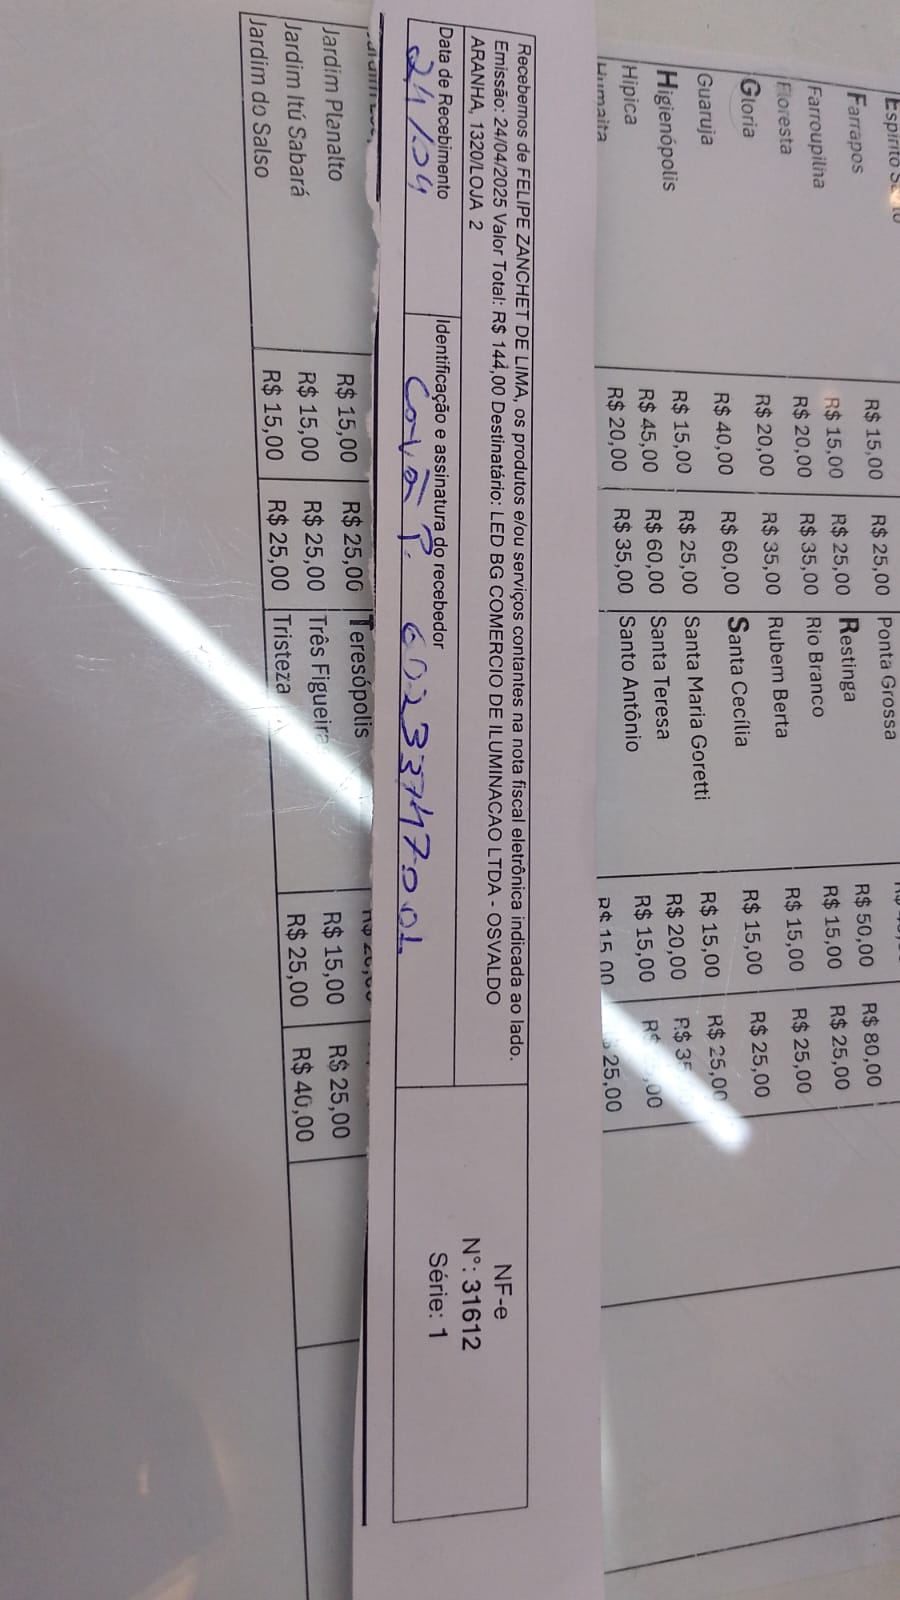 Espírito S to R$ 15,00 R$ 25,00 Ponta Grossa
Farrapos R$ 15,00 R$ 25,00 Restinga R$ 50,00 R$ 80,00
Farroupilha R$ 20,00 R$ 35,00 Rio Branco R$ 15,00 R$ 25,00
Floresta R$ 20,00 R$ 35,00 Rubem Berta R$ 15,00 R$ 25,00
Gloria R$ 40,00 R$ 60,00 Santa Cecília R$ 15,00 R$ 25,00
Guaruja R$ 15,00 R$ 25,00 Santa Maria Goretti R$ 15,00 R$ 25,00
Higienópolis R$ 45,00 R$ 60,00 Santa Teresa R$ 20,00 R$ 35
Hipica R$ 20,00 R$ 35,00 Santo Antônio R$ 15,00 R$ ,00
Humaita R$ 15,00 25,00
Recebemos de FELIPE ZANCHET DE LIMA, os produtos e/ou serviços contantes na nota fiscal eletrônica indicada ao lado.
Emissão: 24/04/2025 Valor Total: R$ 144,00 Destinatário: LED BG COMERCIO DE ILUMINACAO LTDA - OSVALDO
ARANHA, 1320/LOJA 2
Data de Recebimento
24/04
Identificação e assinatura do recebedor
P. 6023374700
NF-e
Nº: 31612
Série: 1
Jardim Planalto R$ 15,00 R$ 25,00 Teresópolis
Jardim Itú Sabará R$ 15,00 R$ 25,00 Três Figueira R$ 15,00 R$ 25,00
Jardim do Salso R$ 15,00 R$ 25,00 Tristeza R$ 25,00 R$ 40,00